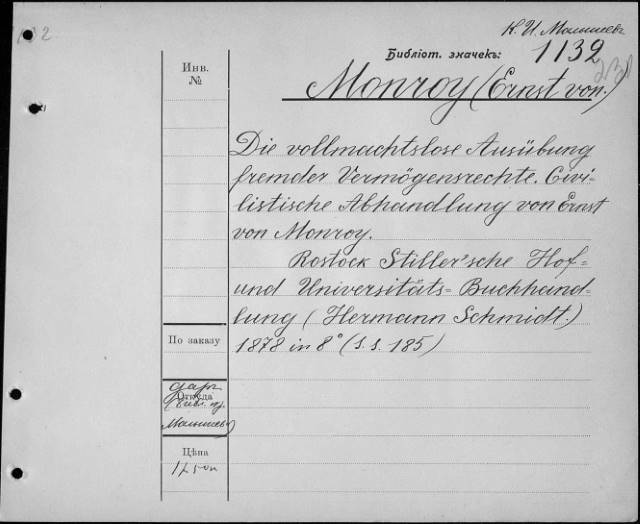 К. И. Малышевъ
Библіот. значекъ: 1132
Инв.
№
Monroy (Ernst von.)
Die vollmachtslose Ausübung
fremder Vermögensrechte. Civi-
listische Abhandlung von Ernst
von Monroy.
Rostock Stiller'sche Hof=
und Universitäts=Buchhand-
lung (Hermann Schmidt.)
1878 in 8° (S.S. 185)
По заказу
Откуда
даръ
Малышева)
Цѣна